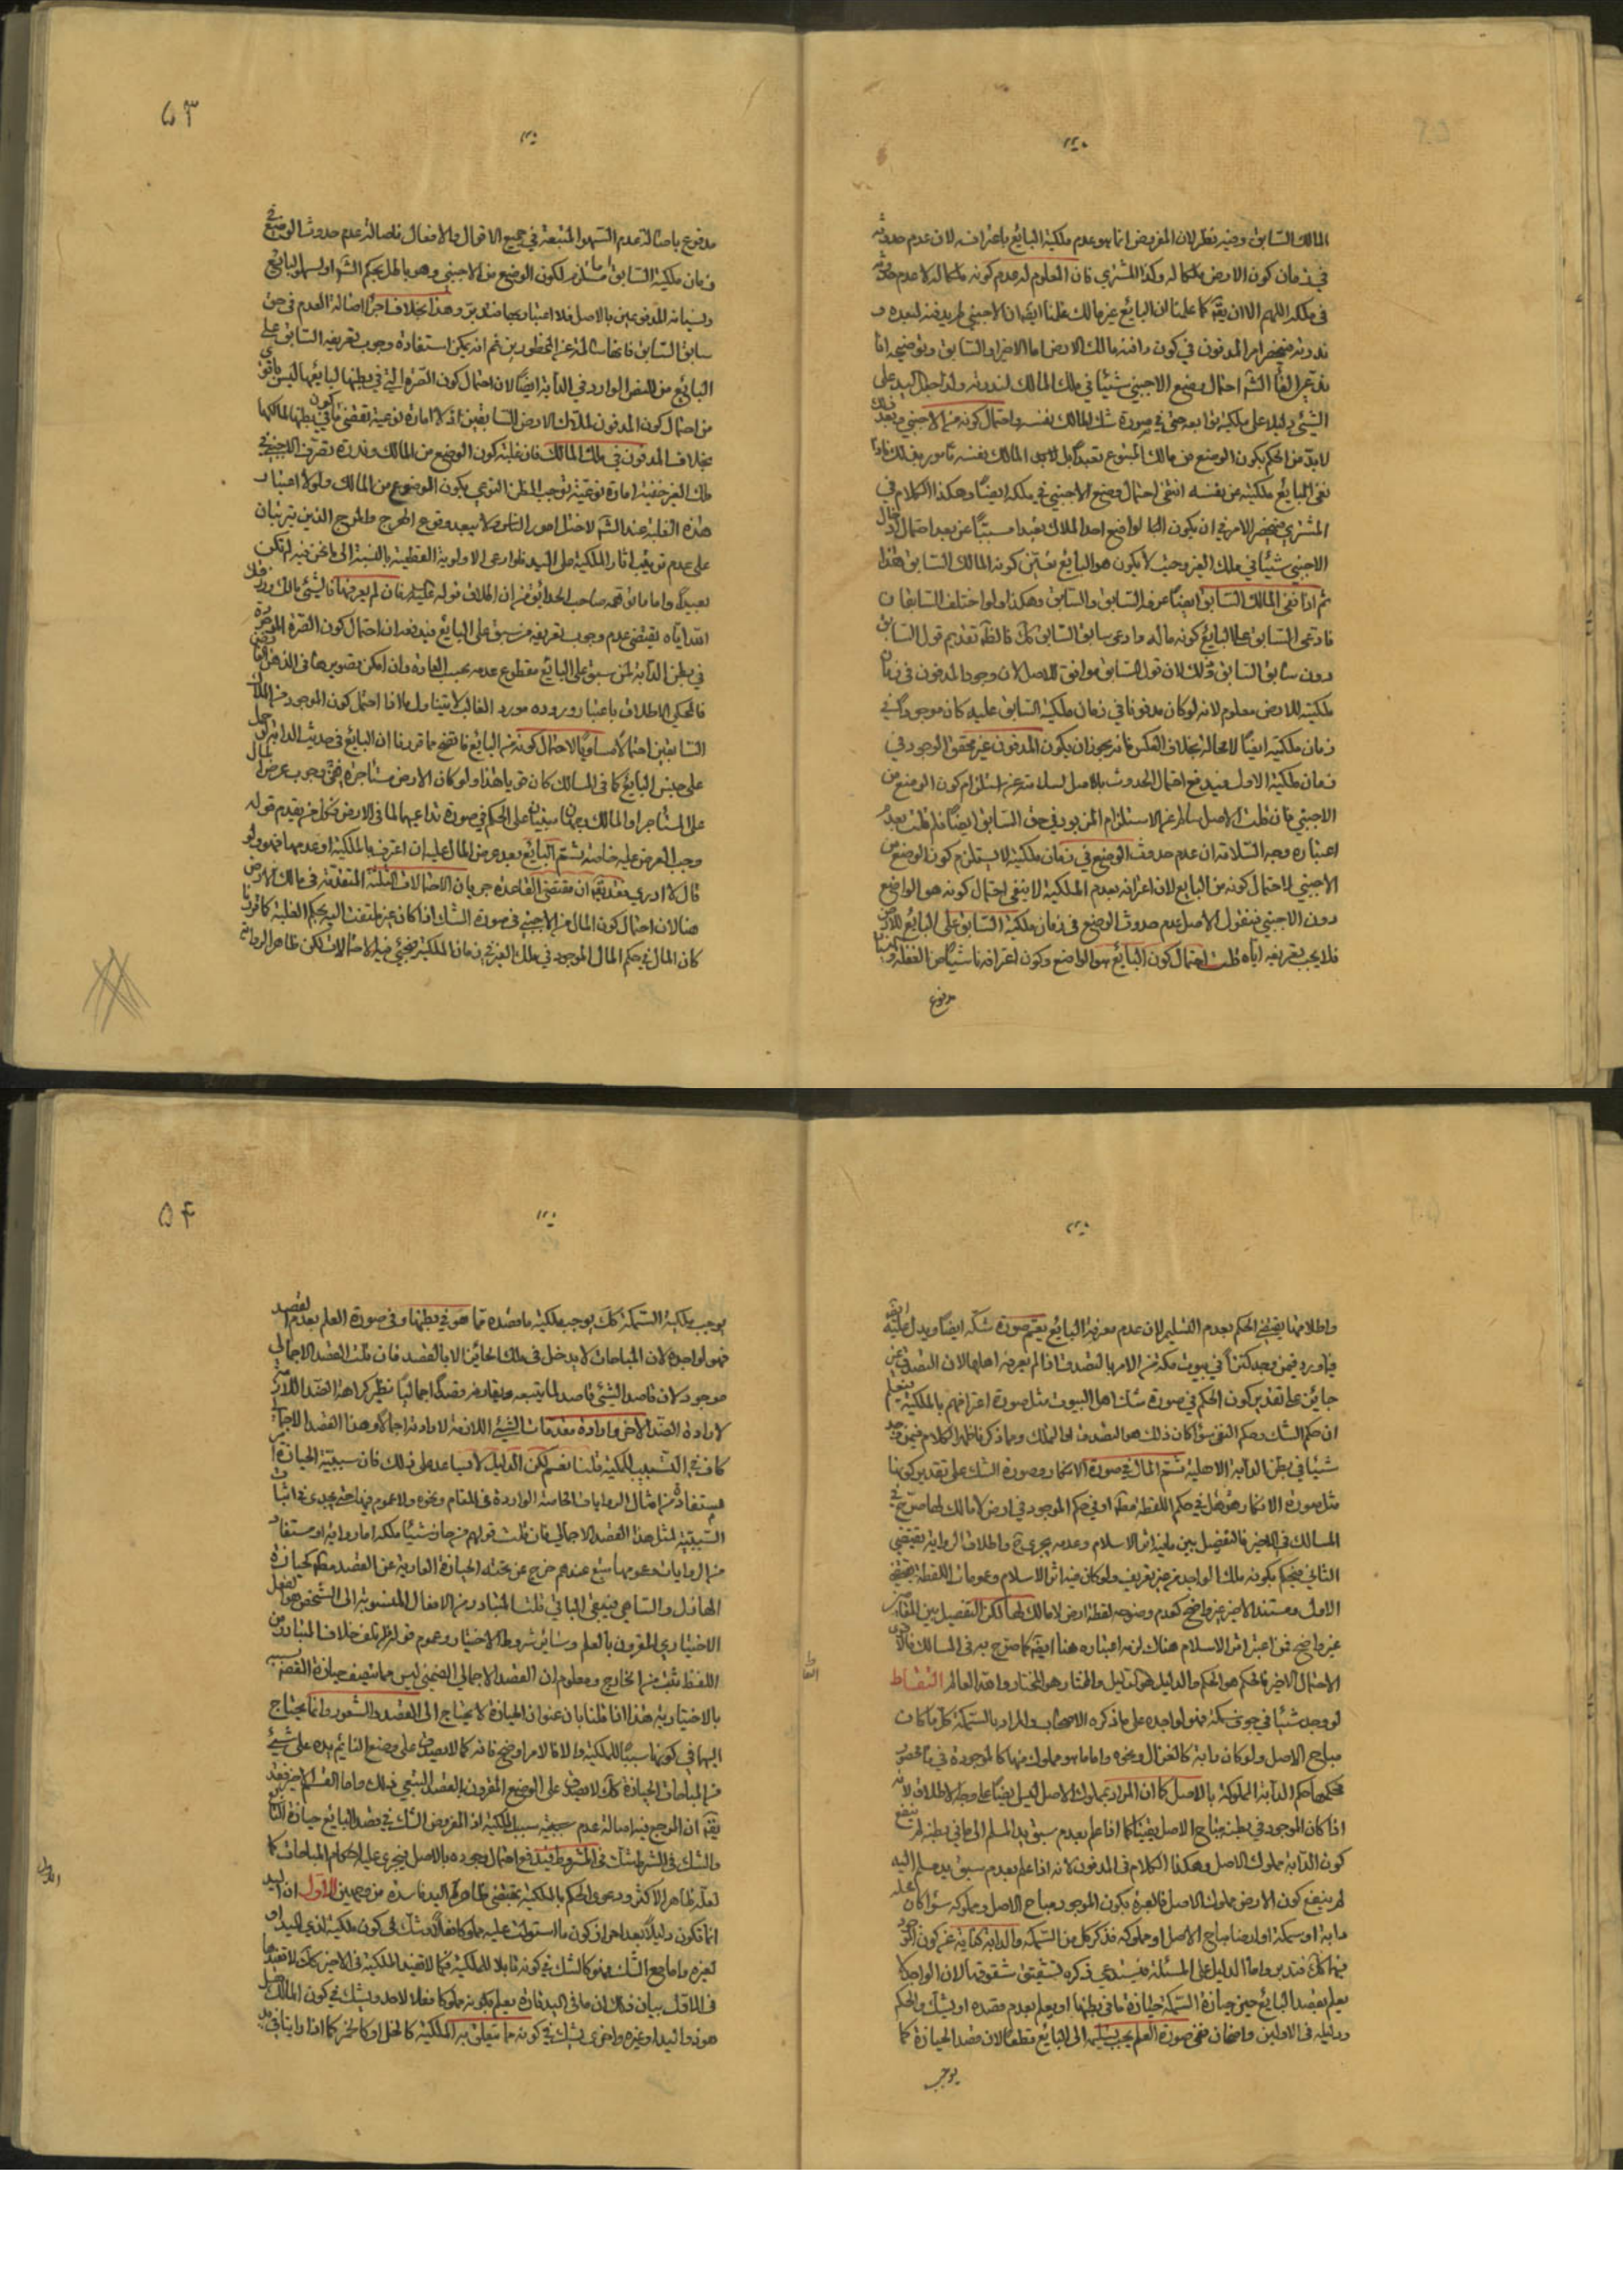 المالك السابق وفيه نظر لان المفروض انما هو عدم ملكية البايع باعترافه لان عدم حدوثه
في زمان كون الارض ملكا له وكذا المشتري فان المعلوم له عدم كونه ملكا له لا عدم حدوثه
في ملكه اللهم الا ان يقال كما علمنا ان البايع غير مالك علمنا ايضا ان الاجنبي لم يدفنه لبعده و
ندوته فينحصر امر المدفون في كون دافنه مالك الارض اما الاخير او السابق وتوضيحه انا
احتمال وضع الاجنبي شيئا في ملك المالك لندرته ولذا جعل اليد على
الشيء دليلا على ملكية توابعه حتى في صورة شك المالك نفسه واحتمال كونه من الاجنبي وبعد ذلك
لابد من الحكم بكون الوضع من مالك المتبوع تعبدا بل لاجل المالك نفسه مأمور بذلك فاذا
نفى البايع ملكيته عن نفسه انتفى احتمال وضع الاجنبي في ملكه ايضا وهكذا الكلام في
المشتري فينحصر الامر في ان يكون الواضع احد الملاك تعبدا مسببا عن بعد احتمال ادخال
الاجنبي شيئا في ملك الغير وحيث لا يكون هو البايع تعين كونه المالك السابق هذا
ثم اذا نفى المالك السابق ايضا عرفه السابق والسابق وهكذا ولو اختلف السابقان
فادعى السابق على البايع كونه ماله وادعى سابق السابق كك فالظ تقديم قول السابق
دون سابق السابق وذلك لان قول السابق موافق للاصل لان وجود المدفون في زمان
ملكيته للارض معلوم لانه لو كان مدفونا في زمان ملكية السابق عليه كان موجودا في
زمان ملكيته ايضا لا محالة بخلاف العكس فانه يجوز ان يكون المدفون غير محقق الوجود في
زمان ملكية الاول فيدفع احتمال الحدوث بالاصل لسلامته عن استلزام كون الوضع من
الاجنبي فان قلت الاصل سالم عن الاستلزام المزبور في حق السابق ايضا فلم قلت بعدم
اعتباره وجه السلامة ان عدم حدوث الوضع في زمان ملكيته لا يستلزم كون الوضع من
الاجنبي لاحتمال كونه من البايع لان اعترافه بعدم الملكية لا ينفى احتمال كونه هو الواضع
دون الاجنبي فنقول الاصل عدم حدوث الوضع في زمان ملكية السابق على البايع للارض
فلا يجب تعريفه اياه قلت احتمال كون البايع هو الواضع وكون اعترافه ناشيا عن الغفلة
مدفوع
۵۳
مدفوع باصالة عدم السهو المتبعة في جميع الاقوال والافعال فاصالة عدم حدوث الوضع في
زمان ملكية السابق مستلزم لكون الوضع من الاجنبي وهو باطل بحكم الشرع او لسهو البايع
ونسيانه المدفوعين بالاصل فلا اعتبار بها فتدبر وهذا بخلاف اجراء اصالة العدم في حق
سابق السابق فانها سالمة عن المحظورين ثم انه يمكن استفادة وجوب تعريف السابق على
البايع من النص الوارد في الدابة ايضا لان احتمال كون الصرة التي في بطنها لبايعها ليس باقوى
من احتمال كون المدفون لملاك الارض السابقين اذ لا امارة نوعية تقتضي كون ما في بطنها لمالكها
بخلاف المدفون في ملك المالك فان غلبة كون الوضع من المالك وندرة تصرف الاجنبي في
ملك الغير خفية امارة نوعية توجب الظن النوعي بكون الموضوع من المالك ولولا اعتبار
هذه الغلبة عند الشرع لاختل امور الناس ولا يبعد وقوع الهرج والمرج الذين يترتبان
على عدم ترتيب اثار الملكية على اليد فلو ادعى الاولوية القطعية بالنسبة الى ما نحن فيه لم تكن
بعيدا واما ما توهمه صاحب الحدائق من ان اطلاق قوله عليه السلام فان لم يعرفها فالشيء لك رزقك
الله اياه يقتضي عدم وجوب تعريف من سبق على البايع فيدفعه ان احتمال كون الصرة الموجودة
في بطن الدابة لمن سبق على البايع مقطوع عدمه بحسب العادة وان امكن تصويره في الذهن
فالحكم بالاطلاق باعتبار وروده مورد الغالب لا يتناول ما اذا احتمل كون الموجود من الملاك
السابقين احتمالا مساويا لاحتمال كونه من البايع فاتضح مما قررنا ان البايع في حديث الدابة
على جنس البايع كما في المسالك كان قويا هذا ولو كان الارض مستاجرة ففي وجوب عرض المال
على المستاجر او المالك وجهان مبنيان على الحكم في صورة تداعيهما لما في الارض فكل من يقدم قوله
وجب العرض عليه خاصة ثم البايع بعد عرض المال عليه ان اعترف بالملكية او عدمها فهو ولو
قال لا ادري فقد يقال ان مقتضى القاعدة جريان الاحتمالات الثلثة المتقدمة في مالك الارض
هنا لان احتمال كون المال من الاجنبي في صورة الشك اذا كان غير ملتفت اليه بحكم الغلبة كما قررنا
كان المال في حكم المال الموجود في ملك الغير في زمان الملكية فيجيء فيه الاحتمالات لكن ظاهر الرواية
واطلاقها يقتضي الحكم بعدم التسليم لان عدم معرفة البايع يعم صورة شكه ايضا ويدل عليه ايضا
ما ورد فيمن وجد كنزا في بيوت مكة من الامر بالتصدق اذا لم يعرفه اهلها لان التصدق غير
جائز على تقدير كون الحكم في صورة شك اهل البيوت مثل صورة اعترافهم بالملكية فيعلم
ان حكم الشك وحكم النفي سواء كان ذلك هو التصدق او التملك ومما ذكرنا ظهر الكلام فيمن وجد
شيئا في بطن الدابة الاهلية ثم المال في صورة الانكار وصورة الشك على تقدير كونها
مثل صورة الانكار هل هو في حكم اللقطة مطلقا او في حكم الموجود في ارض لا مالك لها صرح في
المسالك في الاخير فالتفصيل بين ما فيه اثر الاسلام وعدمه يجري ح واطلاق الرواية يقتضي
الثاني فيحكم بكونه ملكا لواجده من غير تعريف ولو كان فيه اثر الاسلام وعمومات اللقطة يقتضي
الاول ومستند الاخير غير واضح كعدم وضوحه لقطة ارض لا مالك لها لكن التفصيل بين المقامين
غير واضح فمن اعتبر اثر الاسلام هناك لزمه اعتباره هنا ايضا كما صرح به في المسالك فالاقوى
الاحتمال الاخير فالحكم هو الحكم والدليل هو الدليل والمختار هو المختار والله العالم التقاط
لو وجد شيئا في جوف سمكة فهو لواجده على ما ذكره الاصحاب والمراد بالسمكة كل ما كان
مباح الاصل ولو كان دابة كالغزال ونحوه واما ما هو مملوك منها كالموجودة في ماء محصور
فحكمها حكم الدابة المملوكة بالاصل كما ان المراد بمملوك الاصل ليس ايضا على وجه الاطلاق لانه
اذا كان الموجود في بطنه مباح الاصل يقينا كما اذا علم بعدم سبق يد المسلم الى ما في بطنه لم ينفع
كون الدابة مملوك الاصل وهكذا الكلام في المدفون لانه اذا علم بعدم سبق يد مسلم اليه
لم ينفع كون الارض مملوك الاصل فالعبرة بكون الموجود مباح الاصل ومملوكه سواء كان محله
دابة او سمكة او ارضا مباح الاصل او مملوكه فذكر كل من السمكة والدابة كناية عن كون الموجود
فيها كك فتدبر واما الدليل على المسئلة فيستدعي ذكره تشقيق شقوقها لان الواجد اما
يعلم بقصد البايع حين حيازة السمكة حيازة ما في بطنها او يعلم بعدم قصده او يشك والحكم
ودليله في الاولين واضحان ففي صورة العلم يجب تسليمه الى البايع قطعا لان قصد الحيازة كما
يوجب
۵۴
يوجب ملكية السمكة كك يوجب ملكية ما قصده مما هو في بطنها وفي صورة العلم بعدم القصد
فهو لواجده لان المباحات لا يدخل في ملك الحائز الا بالقصد فان قلت القصد الاجمالي
موجود لان قاصد الشيء قاصد لما يتبعه ويقارنه قصدا اجماليا نظير كراهة الضد اللازم
لارادة الضد الاخر وارادة مقدمات الشيء اللازمة لارادته اجمالا وهذا القصد الاجمالي
كاف في التسبيب للملكية قلنا نعم لكن الدليل لا يساعد على ذلك فان سببية الحيازة
مستفادة من امثال الروايات الخاصة الواردة في المقام ونحوه ولا عموم فيها حتى يجدي في اثبات
السببية لمثل هذا القصد الاجمالي فان قلت قولهم من حاز شيئا ملكه اما رواية او مستفاد
من الروايات وعمومها متبع عندهم خرج عن تحته الحيازة العارية عن القصد مطلقا كحيازة
الهازل والساهي فيبقى الباقي قلت المتبادر من الافعال المنسوبة الى الشخص هو الفعل
الاختياري المقرون بالعلم وسائر شروط الاختيار وعموم قوله من اتلف خلاف المتبادر من
اللفظ ثبت من الخارج ومعلوم ان القصد الاجمالي الضمني ليس مما يتصف حيازة القصد بسببه
بالاختيارية هذا اذا قلنا بان عنوان الحيازة لا يحتاج الى القصد والشعور وانما يحتاج
اليها في كونها سببا للملكية والا فالامر اوضح فانه كما لا يصدق على وضع النائم يده على شيء
من المباحات الحيازة كك لا يصدق على الوضع المقرون بالقصد التبعي ذلك واما القسم الاخير فقد
يقال ان المرجع فيه اصالة عدم تحقق سبب الملكية اذ المفروض الشك في قصد البايع حيازة الباقي
والشك في الشرط شك في المشروط فيدفع احتمال وجوده بالاصل فيجري عليه احكام المباحات كما
لعله ظاهر الاكثر ودعوى الحكم بالملكية بمقتضى ظاهر اليد فاسدة من وجهين الاول ان اليد
انما تكون دليلا بعد احراز كون ما استولت عليه مملوكا فعلا وشك في كون ملكيته لذي اليد او
لغيره واما مع الشك فهو كالشك في كونه قابلا للملكية فكما لا تفيد الملكية في الاخير كك لا تفيدها
في الاول بيان ذلك ان ما في اليد تارة يعلم بكونه مملوكا فعلا لاحد ويشك في كون المالك
هو ذو اليد او غيره واخرى يشك في كونه مما يتعلق به الملكية كالخل او كالخمر كما اذا راينا في يد